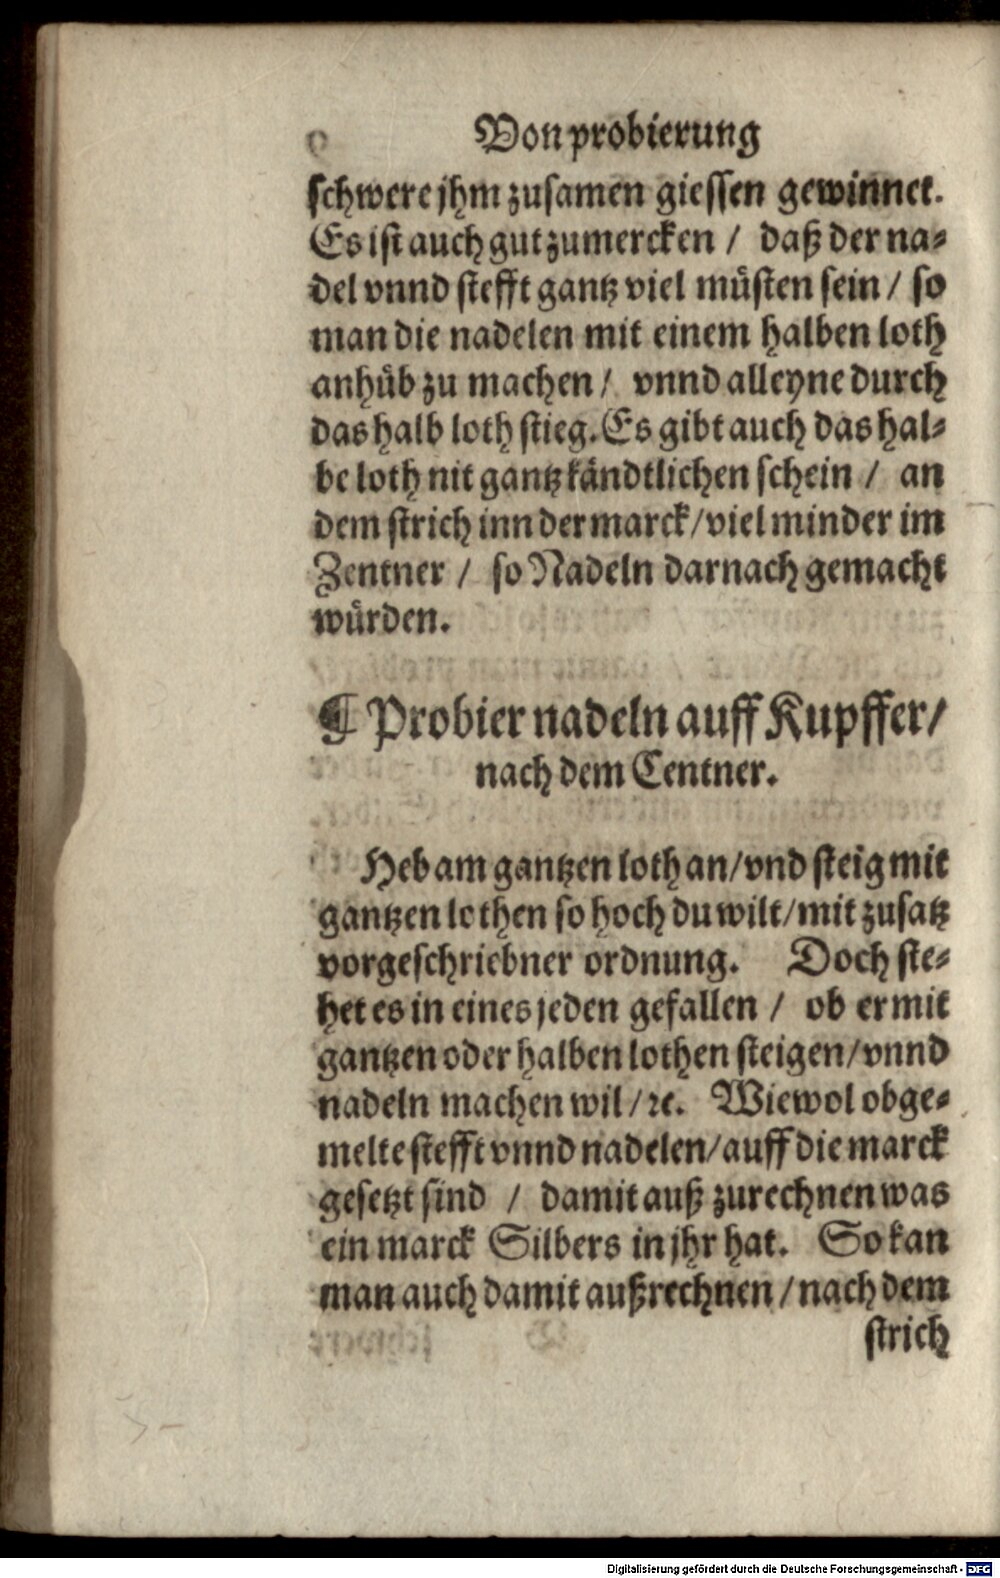 Von probierung
schwere jhm zusamen giessen gewinnet.
Es ist auch gut zumercken / daß der na⸗
del vnnd stefft gantz viel müsten sein / so
man die nadelen mit einem halben loth
anhüb zu machen / vnnd alleyne durch
das halb loth stieg. Es gibt auch das hal⸗
be loth nit gantz kändtlichen schein / an
dem strich inn der marck / viel minder im
Zentner / so Nadeln darnach gemacht
würden.
¶ Probier nadeln auff Kupffer /
nach dem Centner.
Heb am gantzen loth an / vnd steig mit
gantzen lothen so hoch du wilt / mit zusatz
vorgeschriebner ordnung. Doch ste⸗
het es in eines jeden gefallen / ob er mit
gantzen oder halben lothen steigen / vnnd
nadeln machen wil / ꝛc. Wiewol obge⸗
melte stefft vnnd nadelen / auff die marck
gesetzt sind / damit auß zurechnen was
ein marck Silbers in jhr hat. So kan
man auch damit außrechnen / nach dem
strich
Digitalisierung gefördert durch die Deutsche Forschungsgemeinschaft - DFG